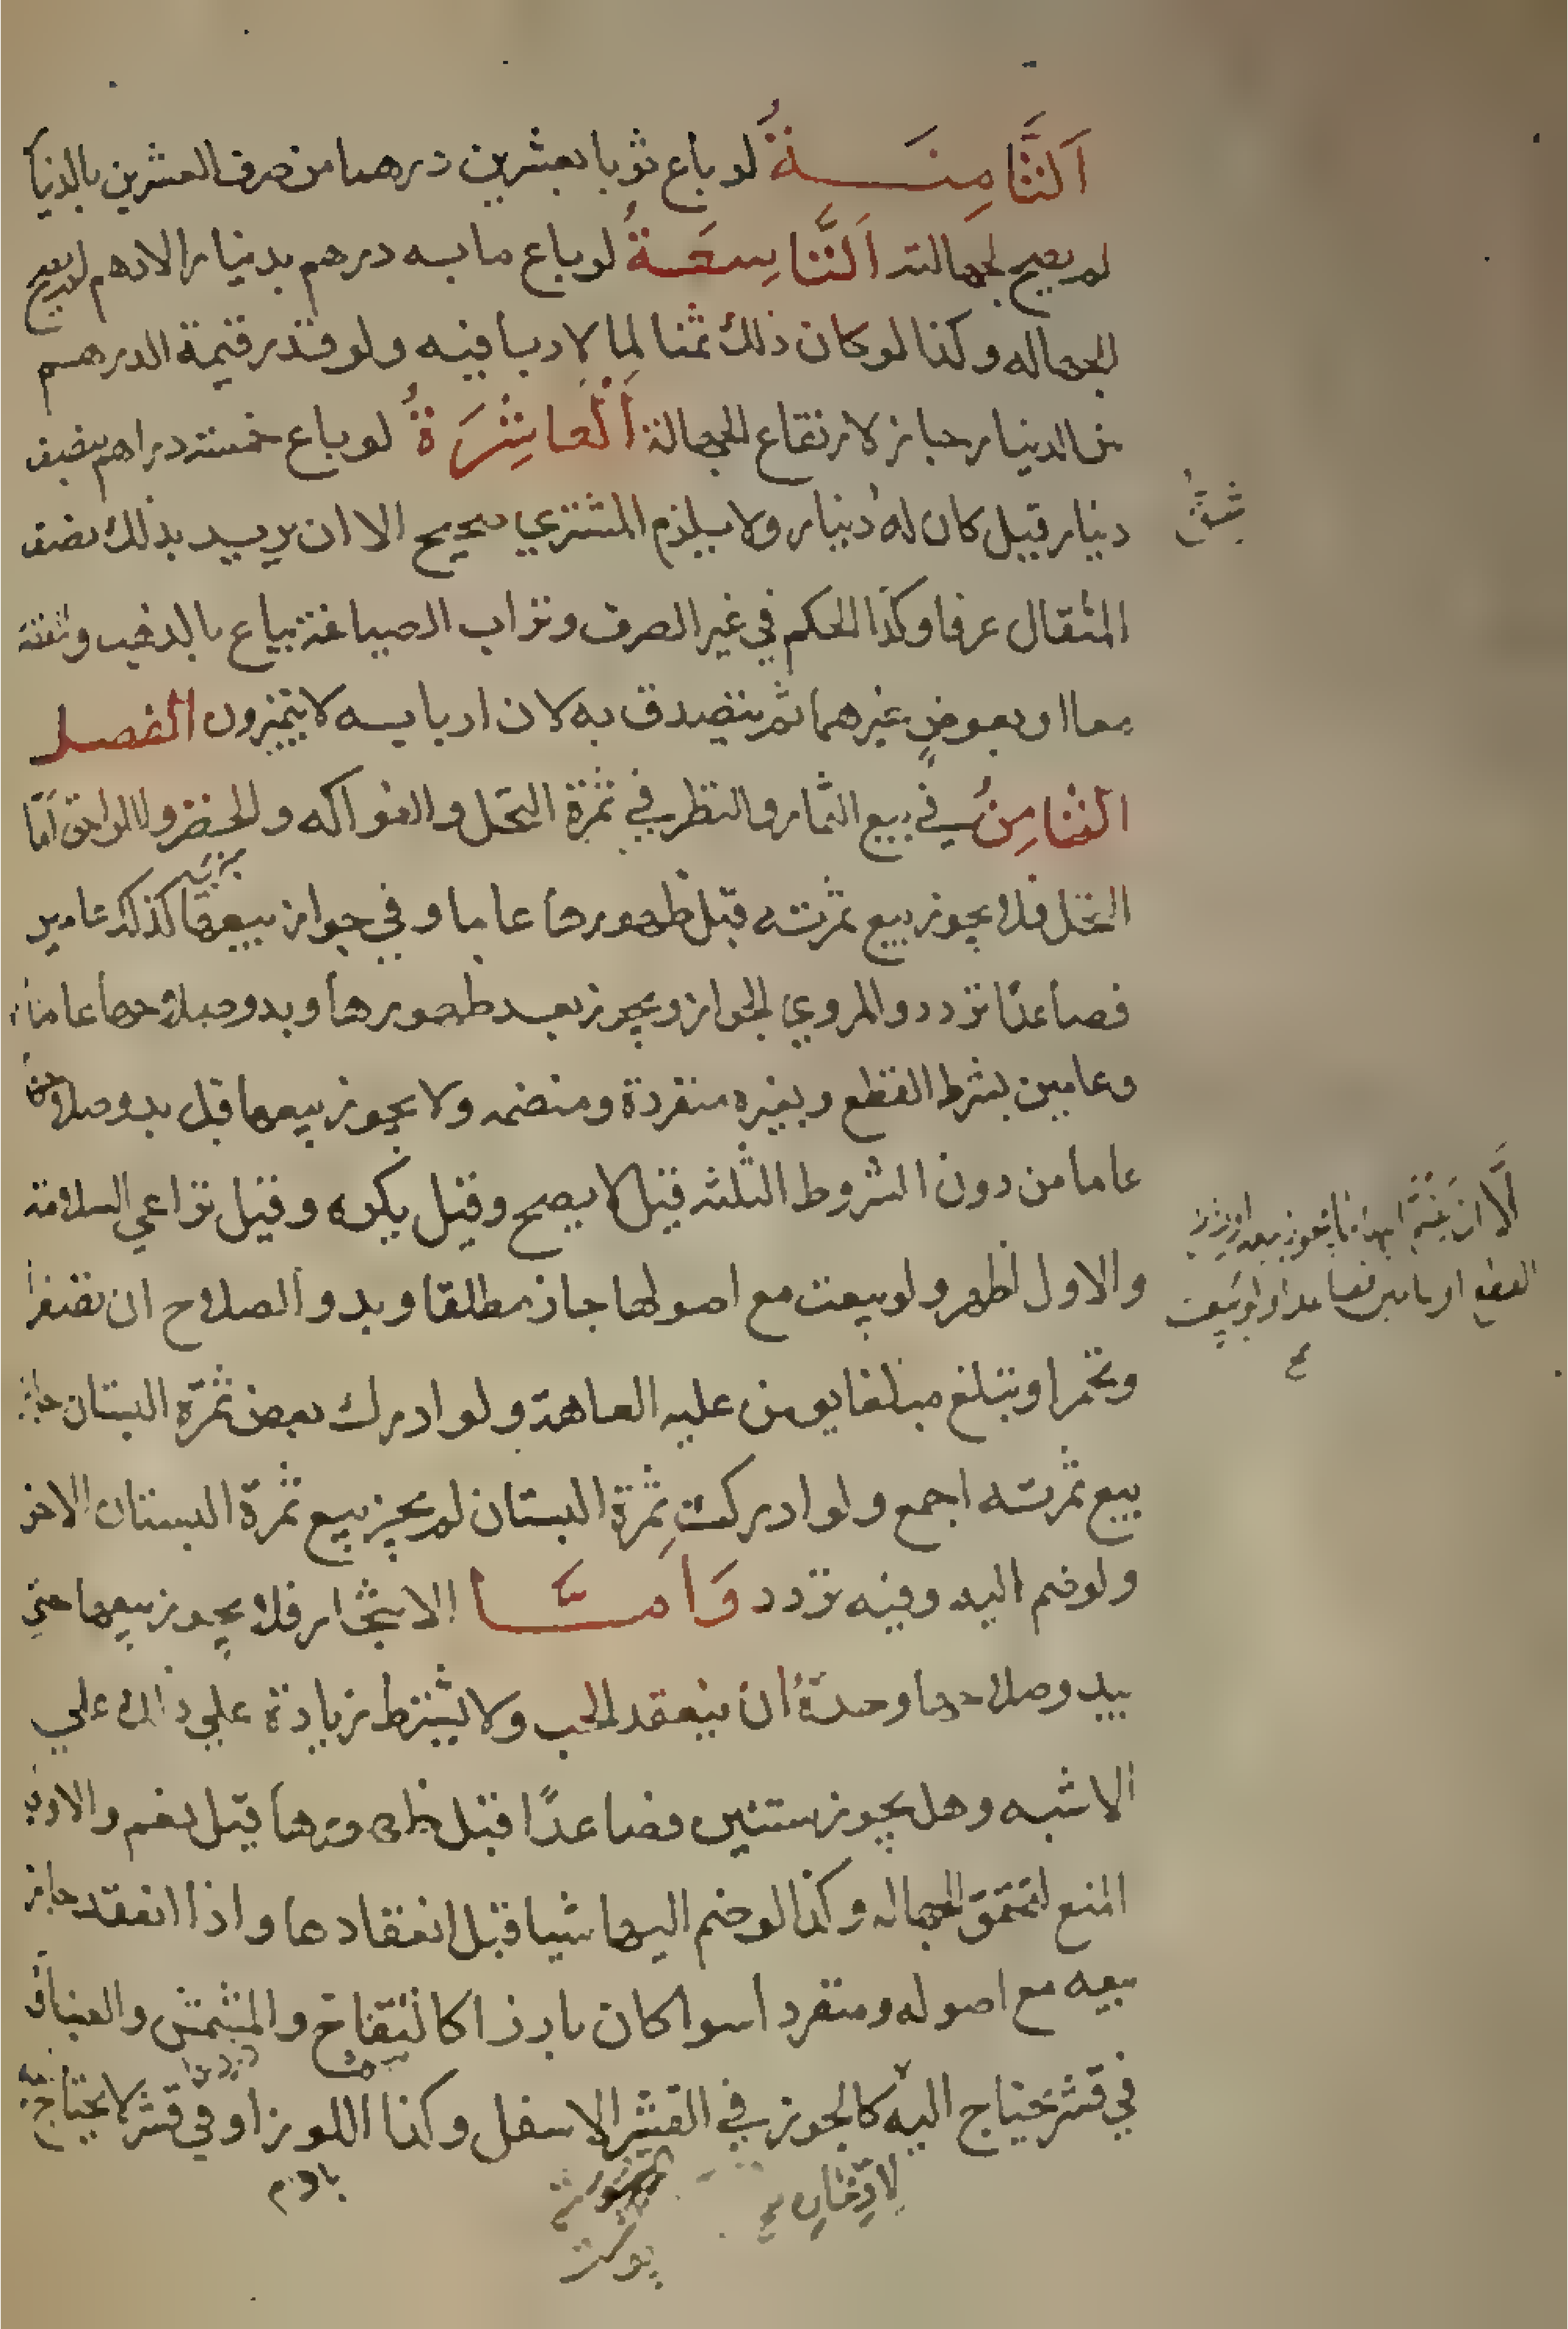 اَلثَّامِنَةُ لو باع ثوبا بعشرين درهما من صرف العشرين بالدنيا
لم يصح لجهالته اَلتَّاسِعَةُ لو باع مايه درهم بدينار الا درهم لم يصح
للجهاله وكذا لو كان ذلك ثمنا لما لا ربا فيه ولو قدر قيمة الدرهم
من الدينار جاز لارتفاع الجهالة اَلْعاشِرَةُ لو باع خمسة دراهم بنصف
دينار قيل كان له دينار ولا يلزم المشتري صحيح الا ان يريد بذلك نصف
شقُّ
المثقال عرفا وكذا الحكم في غير الصرف وتراب الصياغة يباع بالذهب و
معا او بعوضٍ غيرهما ثم يتصدق به لان اربابه لا يتميزون الفصل
الثامِنُ في بيع الثمار والنظر في ثمرة النخل والفواكه والخضر و امّا
النخل فلا يجوز بيع ثمرته قبل ظهورها عاما وفي جواز بيعها كذلك عامين
فصاعدًا تردد والمروي الجواز ويجوز بعد ظهورها وبدو صلاحها عاما
وعامين بشرط القطع وبغيره منفردة ومنضمه ولا يجوز بيعها قبل بدو صلاحها
عاما من دون الشروط الثلثه قيل لا يصح وقيل يكره وقيل تراعي السلامة
والاول اظهر ولو بيعت مع اصولها جاز مطلقا وبدو الصلاح ان تصفر
العطع او عامين فصاعدا ولو بيعت
وتحمر او تبلغ مبلغا يومن عليه العاهة ولو ادرك بعض ثمرة البستان جاز
بيع ثمرته اجمع ولو ادركت ثمرة البستان لم يجز بيع ثمرة البستان الاخر
ولو ضم اليه وفيه تردد وَاَمَّا الاشجار فلا يجوز بيعها حتي
يبدو صلاحها وحدّهُ ان ينعقد الحب ولا يشترط زيادة علي ذلك علي
الاشبه وهل يجوز سنتين فصاعدًا قبل ظهورها قيل نعم والاولي
المنع لتحقق الجهاله وكذا لو ضم اليها شيا قبل انعقادها واذا انعقد جاز
بيعه مع اصوله ومنفردا سوا كان بارزا كالتفاح والمشمش والعنب او
في قشر يحتاج اليه كالجوز في القشر الاسفل وكذا اللوز او في قشر لا يحتاج
لادّخاره
بادم
پوست